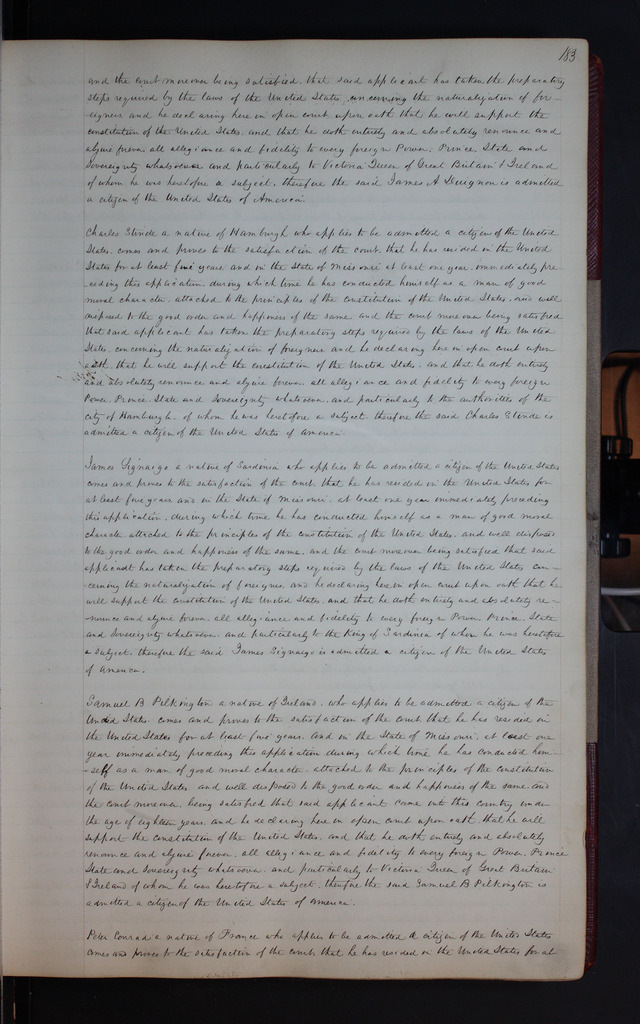 183
and the court moreover being satisfied, that said applicant has taken the preparatory
steps required by the laws of the United States, concerning the naturalization of for-
eigners and he declaring here in open court upon oath that he will support the
constitution of the United States and that he doth entirely and absolutely renounce and
abjure forever all allegiance and fidelity to every foreign Power, Prince State and
Sovereignty whatsoever and particularly to Victoria Queen of Great Britain & Ireland
of whom he was heretofore a subject, therefore the said James A Duignon is admitted
a citizen of the United States of America.
Charles Elinde a native of Hamburgh who applies to be admitted a citizen of the United
States, comes and proves to the satisfaction of the court, that he has resided in the United
States for at least five years and in the State of Missouri at least one year, immediately pre
-ceding this application, during which time he has conducted himself as a man of good
moral character, attached to the principles of the constitution of the United States, and well
disposed to the good order and happiness of the same and the court moreover being satisfied
that said applicant has taken the preparatory steps required by the laws of the United
States, concerning the naturalization of foreigners and he declaring here in open court upon
oath, that he will support the constitution of the United States, and that he doth entirely
and absolutely renounce and abjure forever all allegiance and fidelity to every foreign
Power, Prince, State and Sovereignty whatsoever, and particularly to the authorities of the
city of Hamburgh, of whom he was heretofore a subject therefore the said Charles Elinde is
admitted a citizen of the United States of America.
James Signaigo a native of Sardinia who applies to be admitted a citizen of the United States
comes and proves to the satisfaction of the court, that he has resided in the United States for
at least five years and in the State of Missouri, at least one year immediately preceding
this application, during which time he has conducted himself as a man of good moral
character attached to the principles of the constitution of the United States, and well disposed
to the good order and happiness of the same, and the court moreover being satisfied that said
applicant has taken the preparatory steps required by the laws of the United States con-
cerning the naturalization of foreigners, and he declaring here in open court upon oath that he
will support the constitution of the United States, and that he doth entirely and absolutely re-
nounce and abjure forever all allegiance and fidelity to every foreign Power Prince State
and Sovereignty whatsoever, and particularly to the King of Sardinia of whom he was heretofore
a subject, therefore the said James Signaigo is admitted a citizen of the United States
of America.
Samuel B Pilkington a native of Ireland, who applies to be admitted a citizen of the
United States, comes and proves to the satisfaction of the court that he has resided in
the United States for at least five years, and in the State of Missouri, at least one
year immediately preceding this application during which time he has conducted him-
-self as a man of good moral character, attached to the principles of the constitution
of the United States, and well disposed to the good order and happiness of the same, and
the court moreover, being satisfied that said applicant came into this country under
the age of eighteen years, and he declaring here in open court upon oath, that he will
support the constitution of the United States, and that he doth entirely and absolutely
renounce and abjure forever, all allegiance and fidelity to every foreign Power, Prince
State and Sovereignty whatsoever, and particularly to Victoria Queen of Great Britain
& Ireland of whom he was heretofore a subject, therefore the said Samuel B Pilkington is
admitted a citizen of the United States of America.
Peter Conrad a native of France who applies to be admitted a citizen of the United States
comes and proves to the satisfaction of the court that he has resided in the United States for at